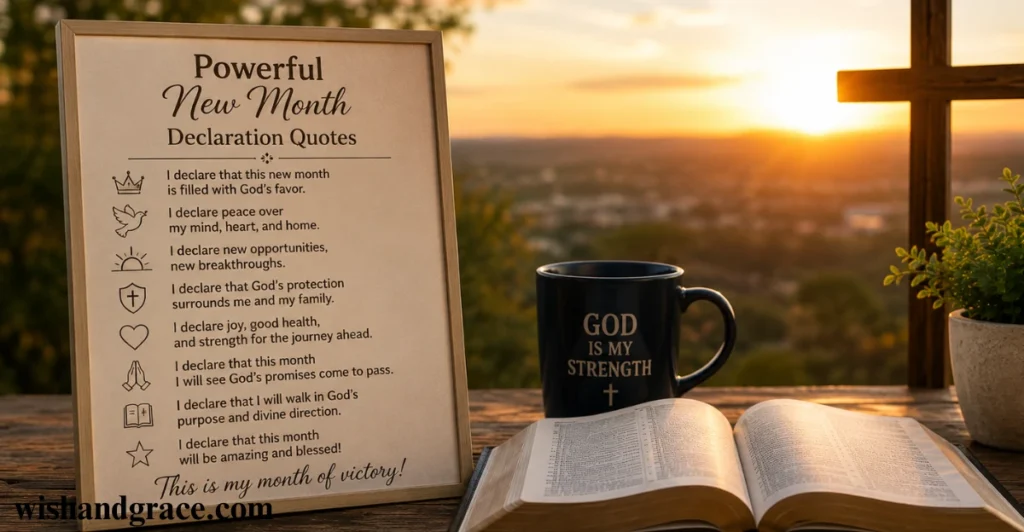 Powerful
New Month
Declaration Quotes
I declare that this new month
is filled with God's favor.
I declare peace over
my mind, heart, and home.
I declare new opportunities,
new breakthroughs.
I declare that God's protection
surrounds me and my family.
I declare joy, good health,
and strength for the journey ahead.
I declare that this month
I will see God's promises come to pass.
I declare that I will walk in God's
purpose and divine direction.
I declare that this month
will be amazing and blessed!
This is my month of victory!
wishandgrace.com
GOD
IS MY
STRENGTH